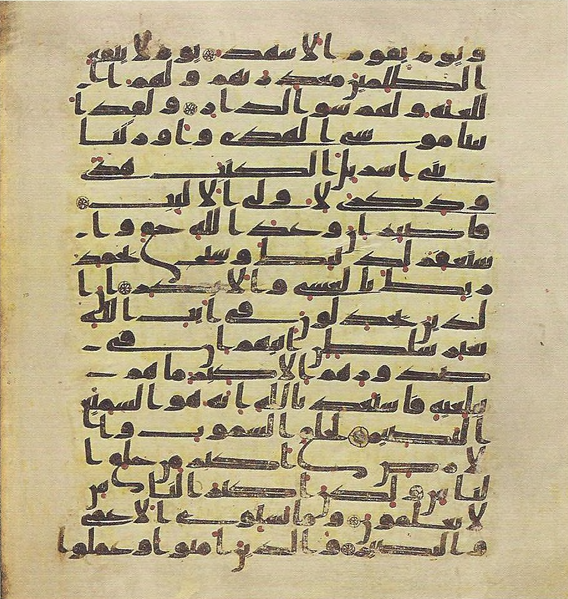 ويوم يقوم الاشهد يوم لا ينفع
الظلمين معذرتهم ولهم ا
للعنه ولهم سو الدار ولقد ا
تينا موسى الهدى واورثنا
بني اسريل الكتب هدى
وذكرى لاولي الالبب
فاصبر ان وعد الله حق وا
ستغفر لذنبك وسبح بحمد
ربك بالعشي والابكر ان ا
لذين يجدلون في ايت الله
بغير سلطن اتيهم ان في
صدورهم الا كبر ما هم
ببلغيه فاستعذ بالله انه هو السميع
البصير لخلق السموت وا
لارض اكبر من خلق ا
لناس ولكن اكثر الناس
لا يعلمون وما يستوي الاعمى
والبصير والذين امنوا وعملوا